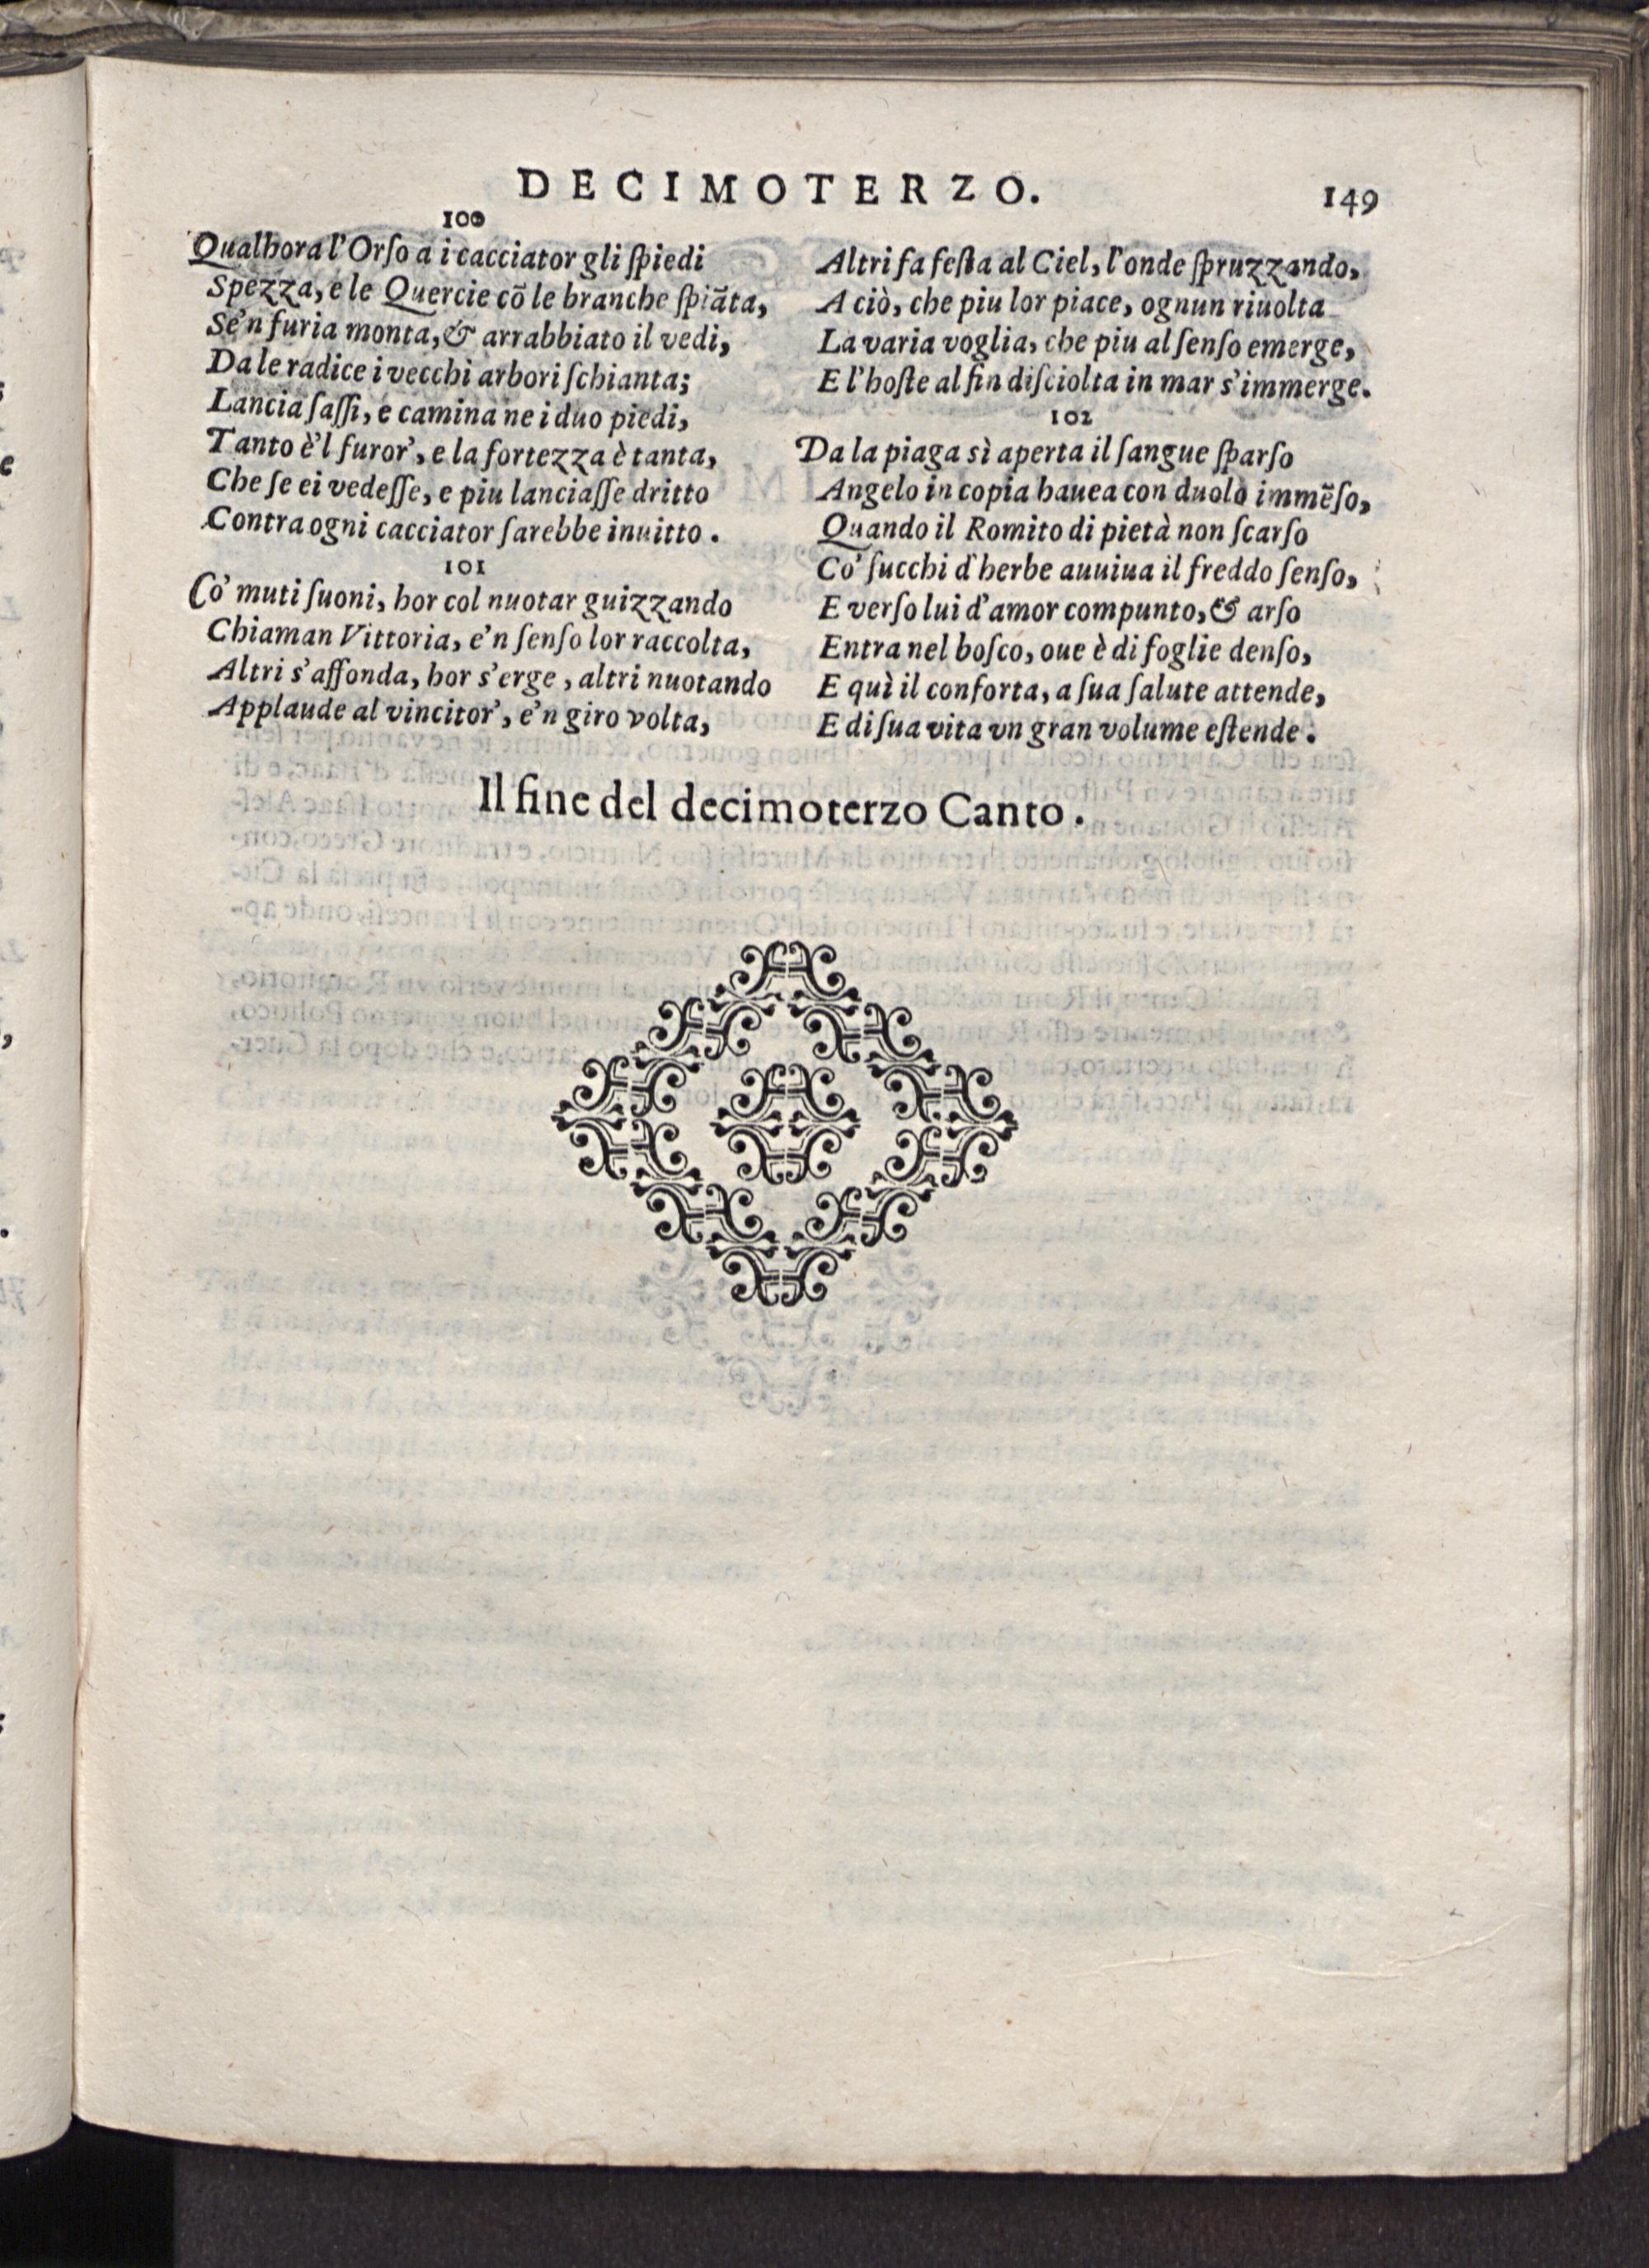 DECIMOTERZO. 149
100
Qualhora l'Orſo a i cacciator gli ſpiedi
Spezza, e le Quercie cō le branche ſpiāta,
Se'n furia monta, & arrabbiato il vedi,
Da le radice i vecchi arbori ſchianta;
Lancia ſaſſi, e camina ne i duo piedi,
Tanto è'l furor', e la fortezza è tanta,
Che ſe ei vedeſſe, e piu lanciaſſe dritto
Contra ogni cacciator ſarebbe inuitto.
101
Co' muti ſuoni, hor col nuotar guizzando
Chiaman Vittoria, e'n ſenſo lor raccolta,
Altri s'affonda, hor s'erge, altri nuotando
Applaude al vincitor', e'n giro volta,
Altri fa feſta al Ciel, l'onde ſpruzzando,
A ciò, che piu lor piace, ognun riuolta
La varia voglia, che piu al ſenſo emerge,
E l'hoſte al fin diſciolta in mar s'immerge.
102
Da la piaga sì aperta il ſangue ſparſo
Angelo in copia hauea con duolo immēſo,
Quando il Romito di pietà non ſcarſo
Co' ſucchi d'herbe auuiua il freddo ſenſo,
E verſo lui d'amor compunto, & arſo
Entra nel boſco, oue è di foglie denſo,
E quì il conforta, a ſua ſalute attende,
E di ſua vita vn gran volume eſtende.
Il fine del decimoterzo Canto.